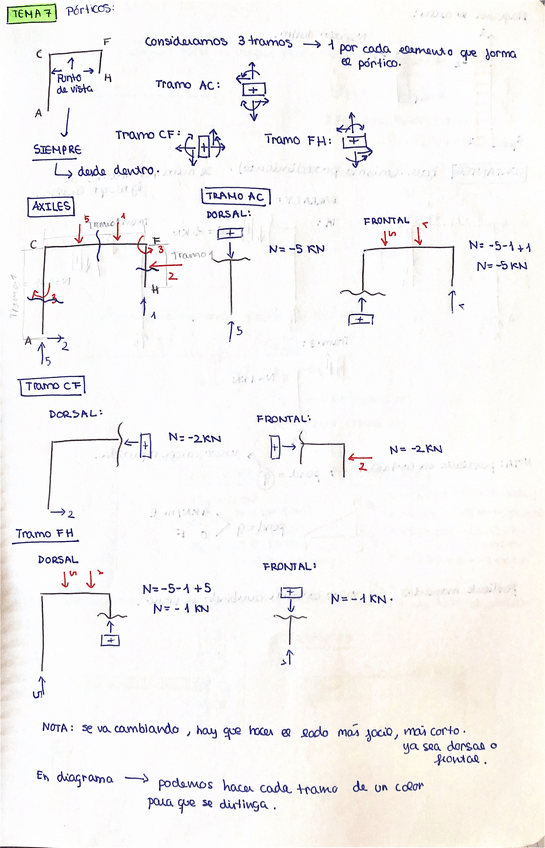 TEMA 7 Pórticos:
C F
Consideramos 3 tramos → 1 por cada elemento que forma
el pórtico.
Punto
de vista
H
A
Tramo AC: +
SIEMPRE
↳ desde dentro.
Tramo CF: +
Tramo FH: +
AXILES
TRAMO AC
DORSAL:
FRONTAL
5 1
C F
3
Tramo 1
2
H
3
A 2
5
1
+
N = -5 KN
5
5 1
N = -5-1+1
N = -5 KN
+
1
Tramo CF
DORSAL:
+
N = -2 KN
2
FRONTAL:
+
N = -2 KN
2
Tramo FH
DORSAL
5 1
N = -5-1+5
N = -1 KN
+
5
FRONTAL:
+
N = -1 KN.
1
NOTA: se va cambiando, hay que hacer el lado más facil, más corto.
ya sea dorsal o
frontal.
En diagrama → podemos hacer cada tramo de un color
para que se distinga.